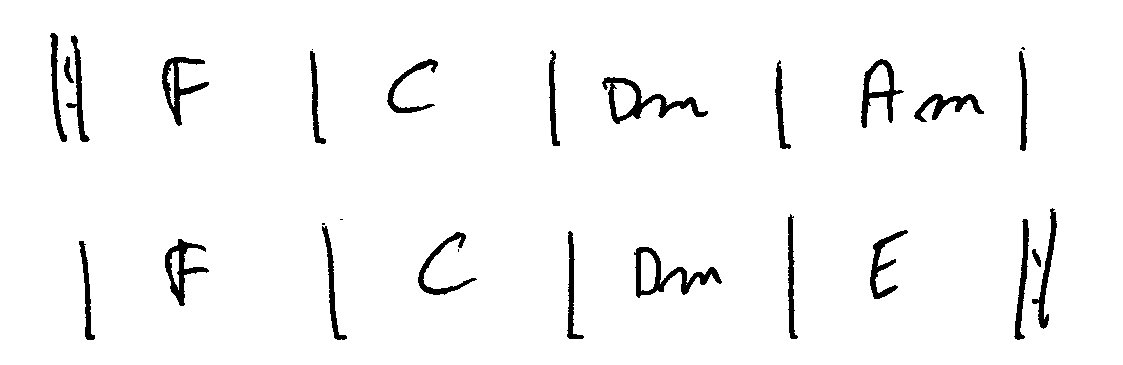 |: F | C | Dm | Am |
| F | C | Dm | E :|